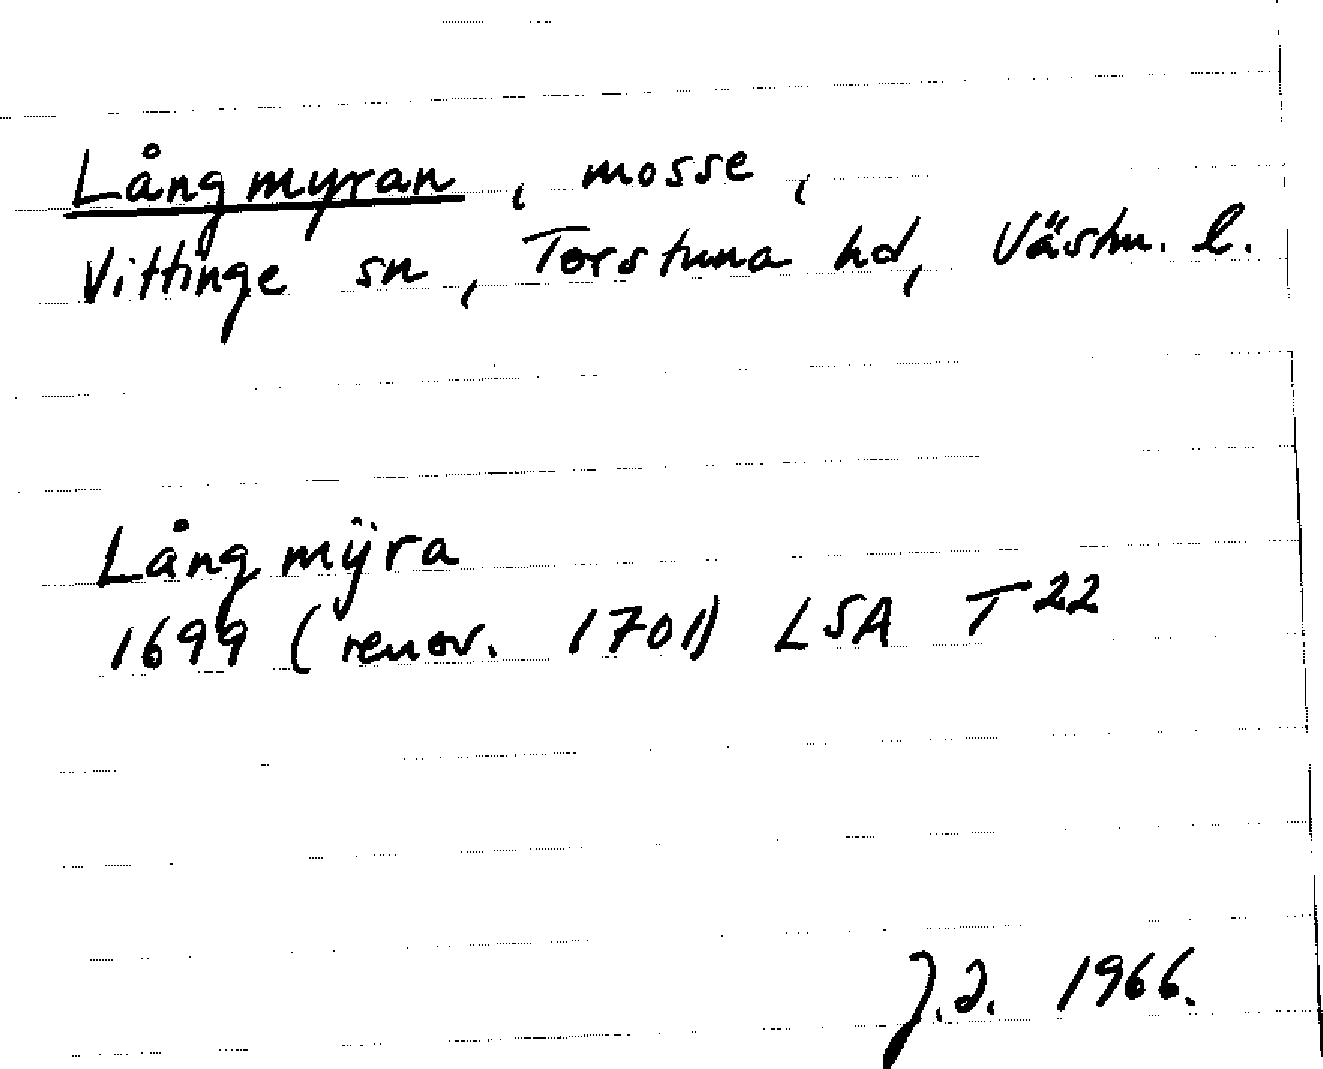 Långmyran, mosse,
Vittinge sn, Torstuna hd, Västm. l.
Lång mÿra
1699 (renov. 1701) LSA T 22
J.D. 1966.